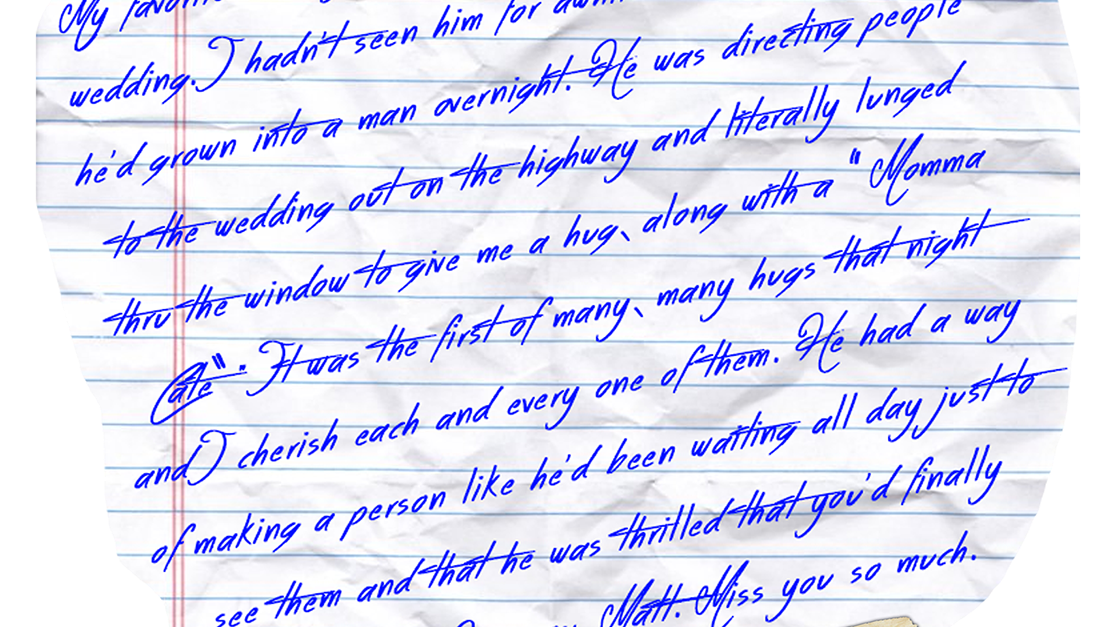 My
wedding. I hadn't seen him for
he'd grown into a man overnight. He was directing people
to the wedding out on the highway and literally lunged
thru the window to give me a hug, along with a "Momma
Cate". It was the first of many, many hugs that night
and I cherish each and every one of them. He had a way
of making a person like he'd been waiting all day just to
see them and that he was thrilled that you'd finally
Matt. Miss you so much.